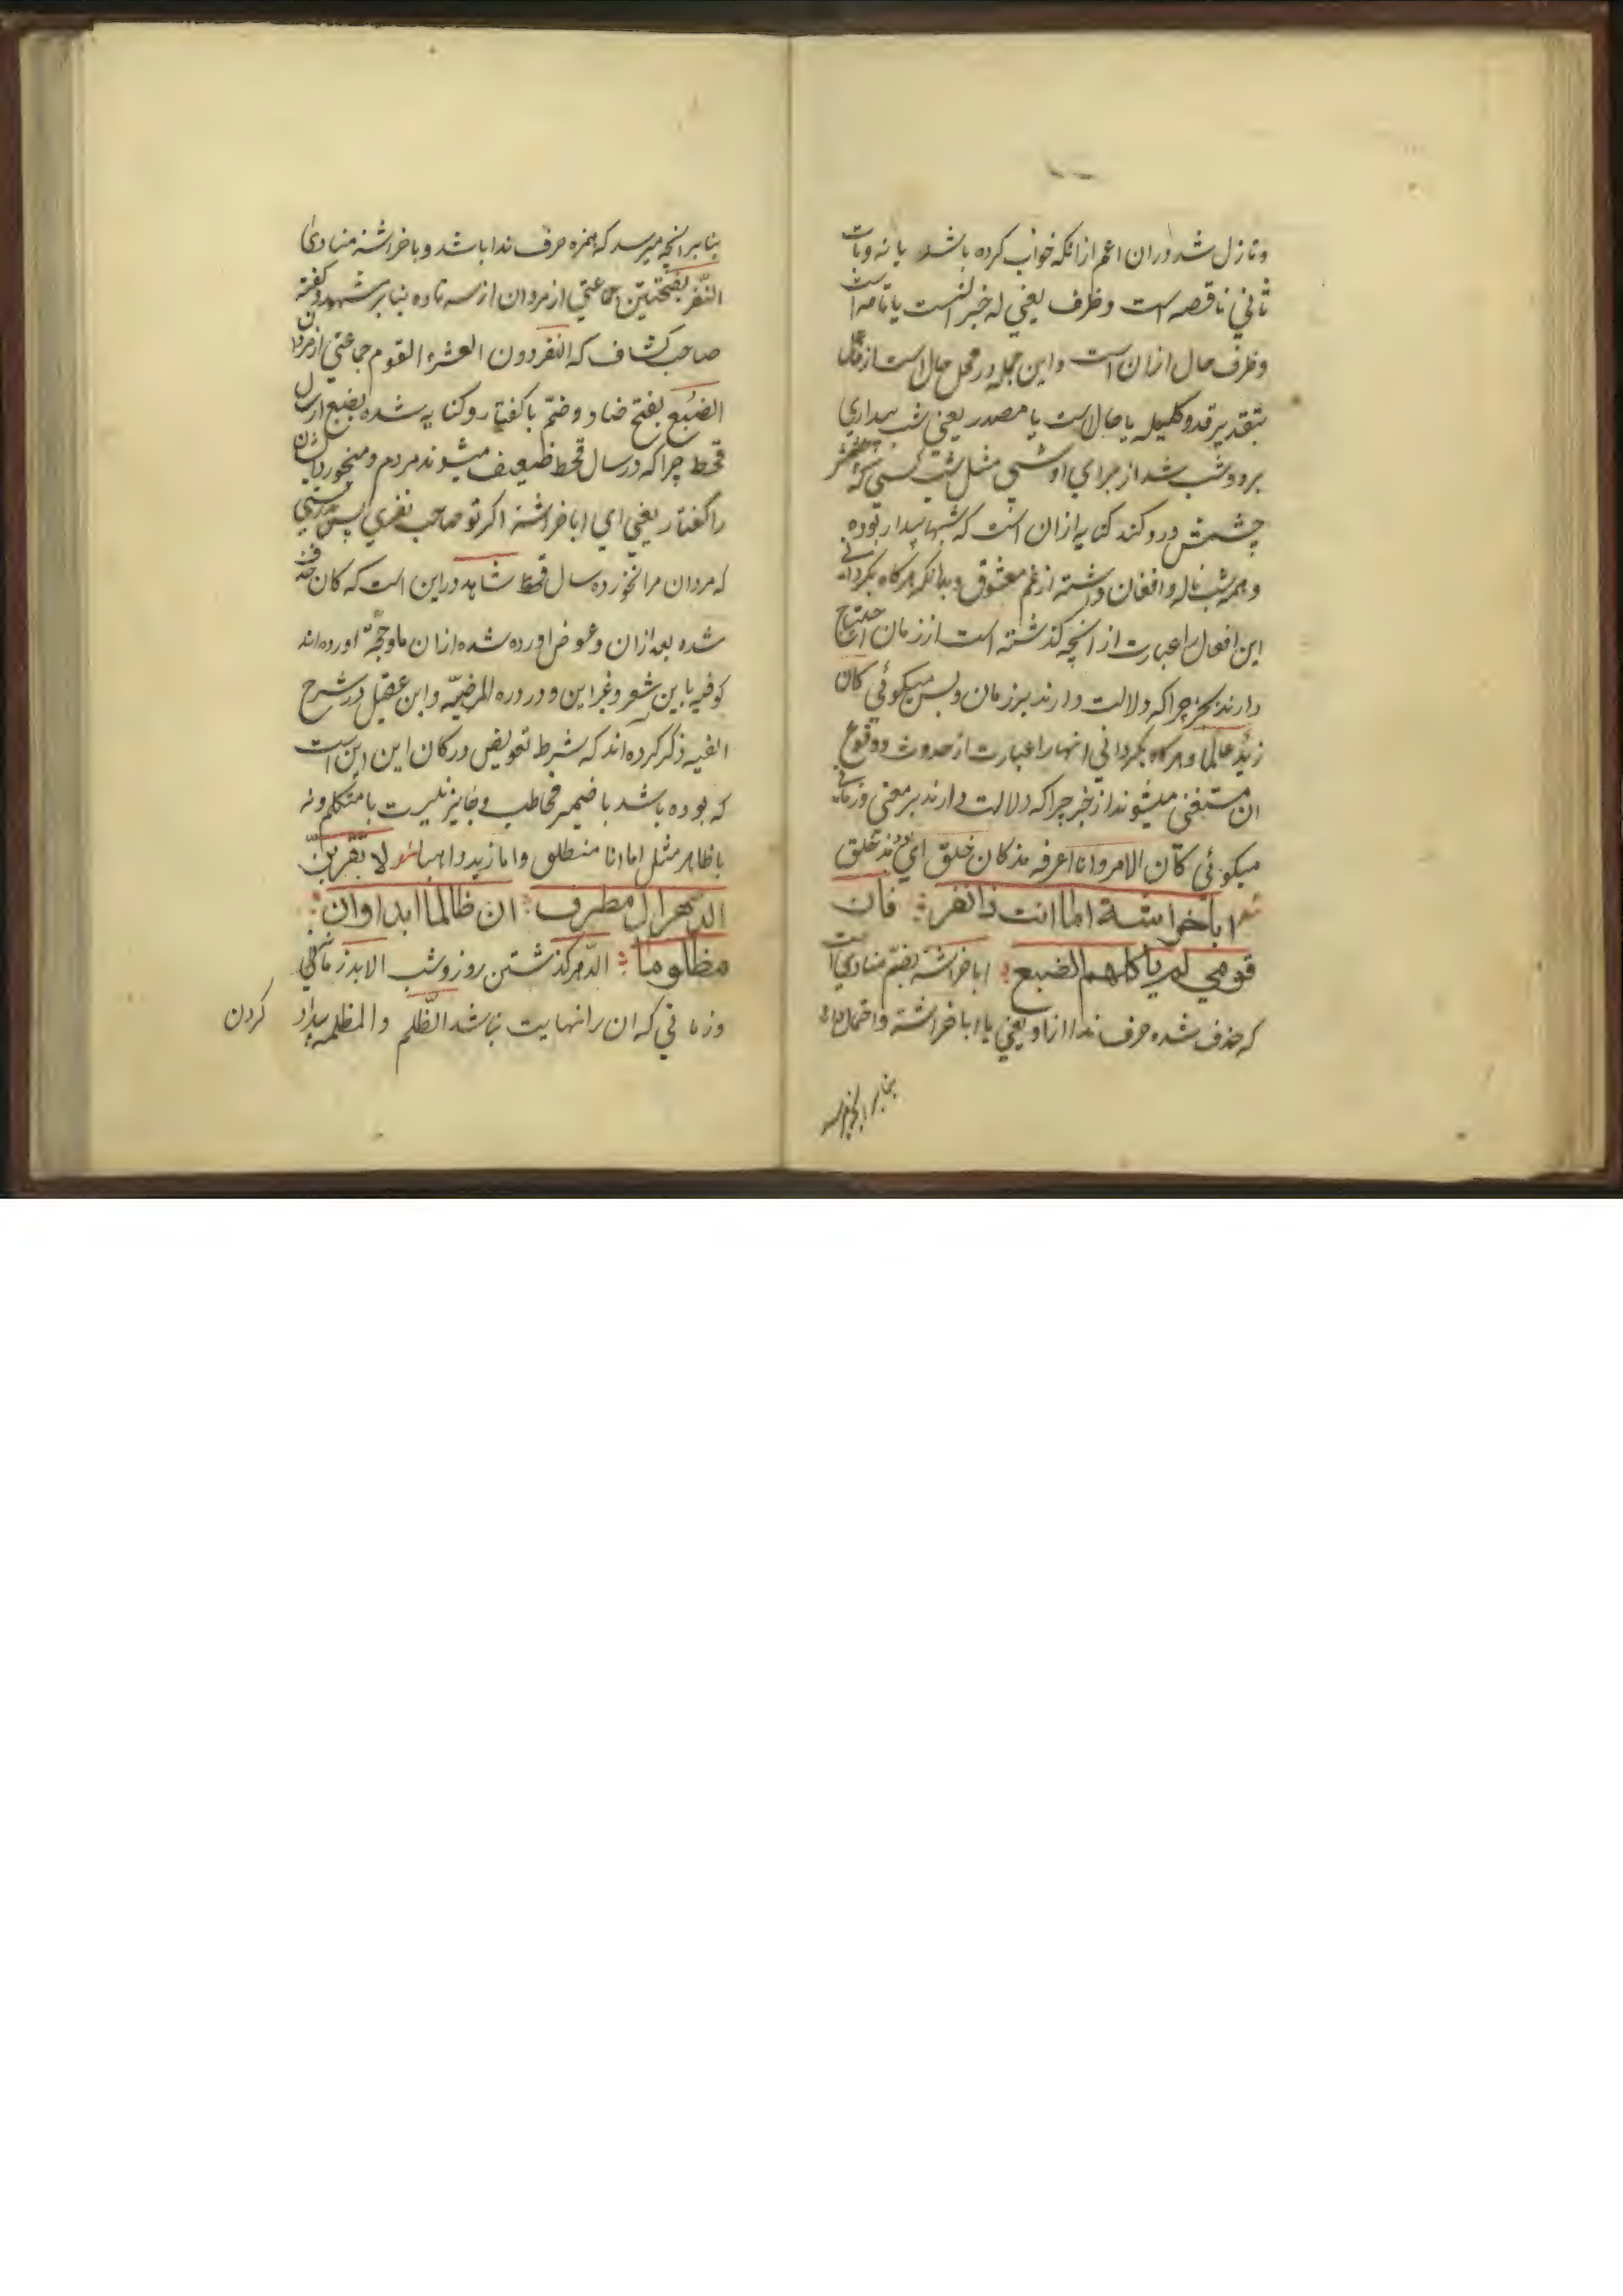 ونازل شد دران اعم ازانکه خواب کرده باشد یا نه وبات
ثانی ناقصه است وظرف یعنی له خبر است یا تامه است
وظرف حال ازان است واین جمله در محل حال است از فاعل
بتقدیر قد وکلیله یا حال است یا مصدر یعنی شب بیداری
برد وشب شد از برای او شبی مثل شب کسی که
چشمش درد کند کنایه ازان است که شبها بیدار بوده
وهمه شب ناله وافغان داشته از غم معشوق وبدانکه هرکاه بکردانی
این افعال را عبارت از انچه کذشته است از زمان احتیاج
دارند بخبر چراکه دلالت دارند بر زمان وبس میکوئی کان
زید عالما وهرکاه بکردانی انها را عبارت از حدوث ووقوع
ان مستغنی میشوند از خبر چراکه دلالت دارند بر معنی وزمانی
میکوئی کان الامر وانا اعرفه مذ کان خلق ای مذ خلق
شعر اباخراشة اما انت ذا نفر فان
قومی لم یاکلهم الضبع اباخراشة بضم منادی است
که حذف شده حرف ندا ازاو یعنی یا اباخراشة واحتمال دارد
بنابر انچه میرسد
بنابر انچه میرسد که همزه حرف ندا باشد وباخراشة منادی
النفر بفتحتین جماعتی از مردان از سه تا ده بنابر مشهور وکفته
صاحب کشاف که النفر دون العشرة القوم جماعتی از مردان
الضبع بفتح ضاد وضم با کفتار وکنایه شده بضبع از سال
قحط چراکه در سال قحط ضعیف میشوند مردم ومیخورد ایشان
را کفتار یعنی ای اباخراشة اکر تو صاحب نفری پس بدرستی
که مردان مرا نخورده سال قحط شاهد دراین است که کان حذف
شده بعد ازان وعوض اورده شده ازان ما وحجة اورده اند
کوفیه باین شعر وغیر این ودر دره المرضیّه وابن عقیل در شرح
الفیه ذکر کرده اند که شرط تعویض در کان این این است
که بوده باشد با ضمیر مخاطب وجایز نیست با متکلم ونه
با ظاهر مثل اما انا منطلق واما زید ذاهبا شعر لا تقربن
الدهر ال مطرف ان ظالما ابدا وان
مظلوما الدهر کذشتن روز وشب الابد زمانی
وزمانی که ان را نهایت نباشد الظلم والمظلمه بیداد کردن